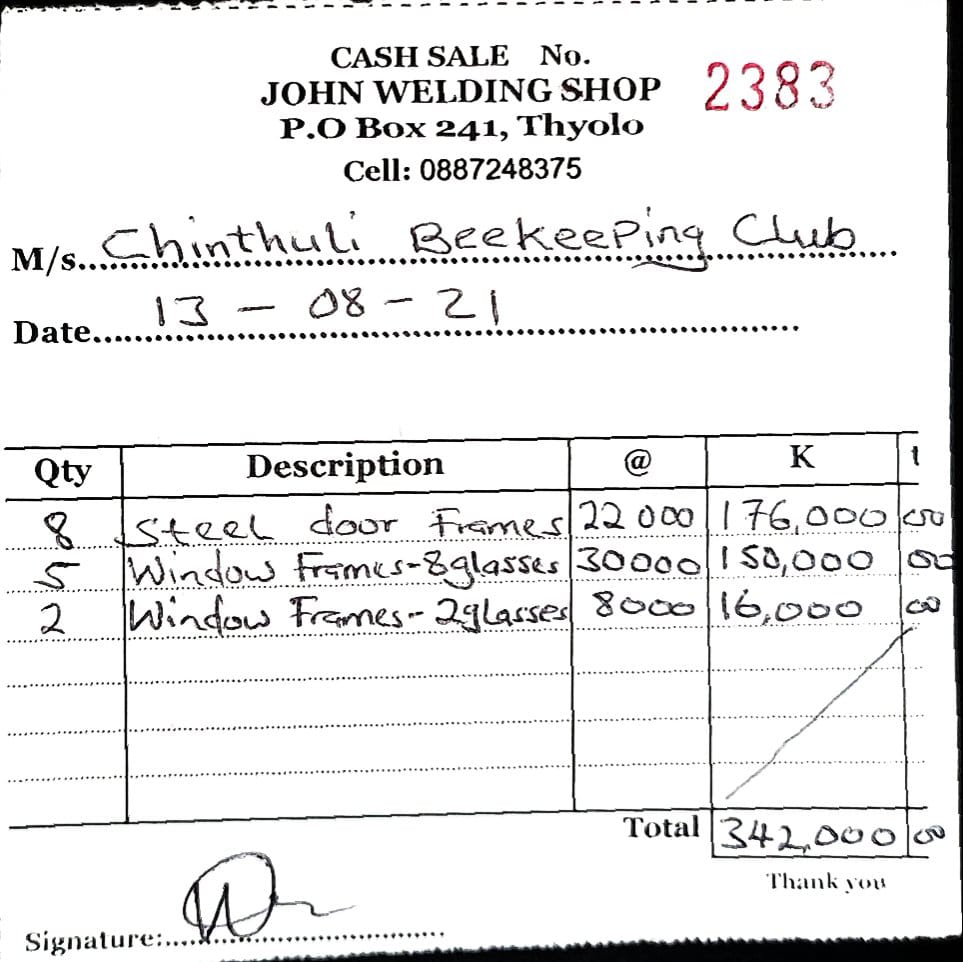 CASH SALE No.
JOHN WELDING SHOP 2383
P.O Box 241, Thyolo
Cell: 0887248375
M/s. Chinthuli Beekeeping Club
Date 13 - 08 - 21
Qty Description @ K t
8 Steel door Frames 22 000 176,000 00
5 Window Frames-8glasses 30000 150,000 00
2 Window Frames-2glasses 8000 16,000 00
Total 342,000 00
Thank you
Signature: